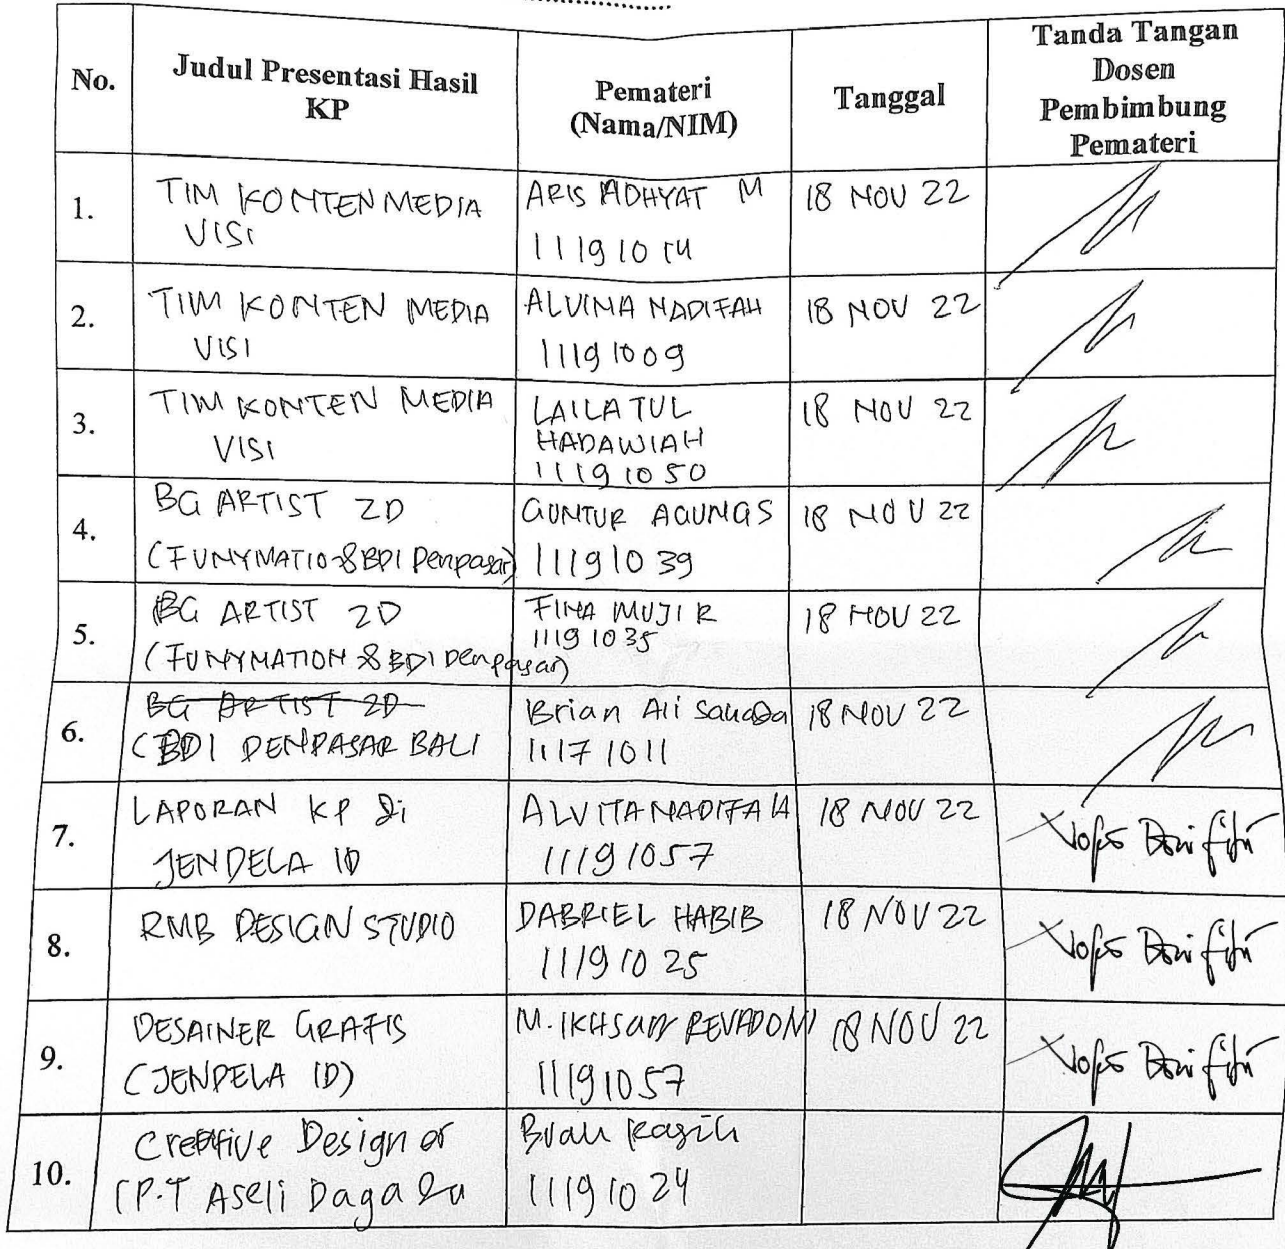 No.
Judul Presentasi Hasil
KP
Pemateri
(Nama/NIM)
Tanggal
Tanda Tangan
Dosen
Pembimbung
Pemateri
1.
TIM KONTEN MEDIA
VISI
ARIS ADHYAT M
11191014
18 NOV 22
2.
TIM KONTEN MEDIA
VISI
ALVINA NADIFAH
11191009
18 NOV 22
3.
TIM KONTEN MEDIA
VISI
LAILATUL
HADAWIAH
11191050
18 NOV 22
4.
BG ARTIST 2D
(FUNYMATIO & BDI Denpasar)
GUNTUR AGUNG S
11191039
18 NOV 22
5.
BG ARTIST 2D
(FUNYMATION & BDI Denpasar)
FINA MUJI R
11191035
18 NOV 22
6.
BG ARTIST 2D
(BDI DENPASAR BALI
Brian Ali
11171011
18 NOV 22
7.
LAPORAN KP di
JENDELA ID
ALVITA NADIFAH
11191057
18 NOV 22
8.
RMB DESIGN STUDIO
DABRIEL HABIB
11191025
18 NOV 22
9.
DESAINER GRAFIS
(JENDELA ID)
M. IKHSAN REVADONI
11191057
18 NOV 22
10.
Creative Designer
(P.T Aseli Dagadu
Buah Kasih
11191024